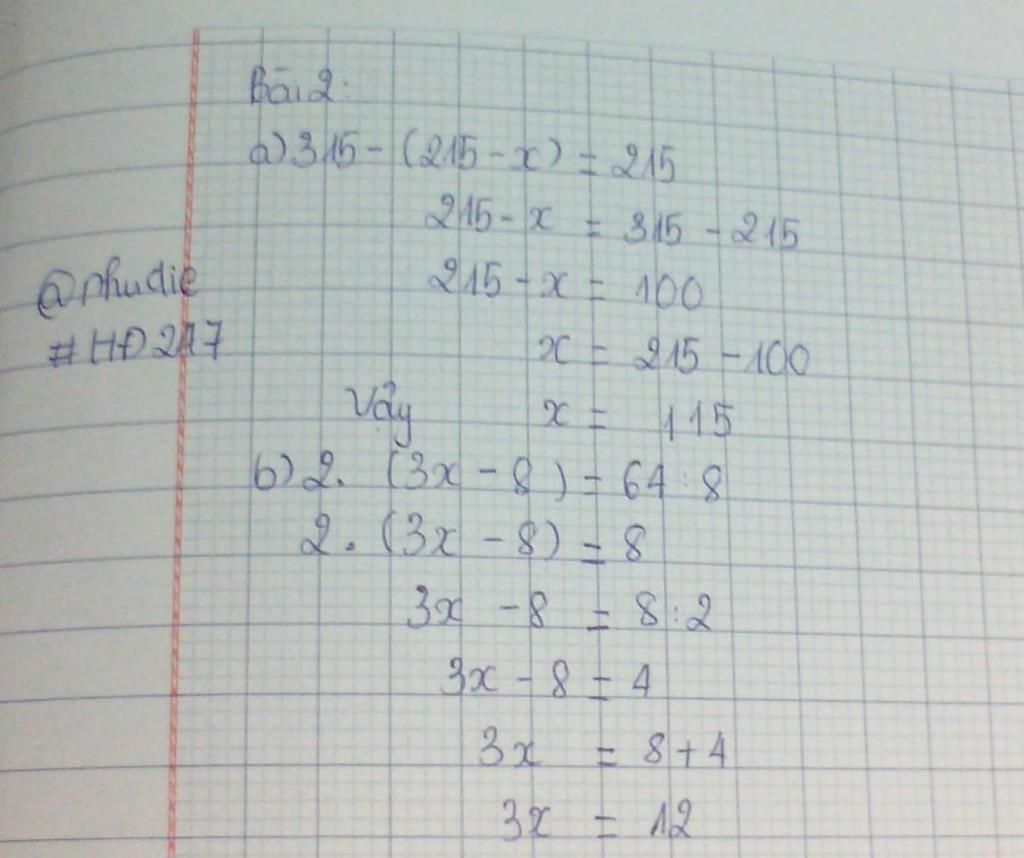 Bài 2:
a) 315 - (215 - x) = 215
215 - x = 315 - 215
215 - x = 100
@nhudie
#HĐ247
x = 215 - 100
Vậy x = 115
b) 2. (3x - 8) = 64 : 8
2. (3x - 8) = 8
3x - 8 = 8 : 2
3x - 8 = 4
3x = 8 + 4
3x = 12